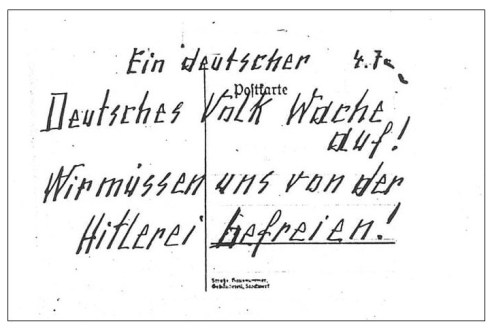 Ein deutscher 4.7a
Postkarte
Deutsches Volk Wache
auf!
Wir müssen uns von der
Hitlerei befreien!
Straße, Hausnummer,